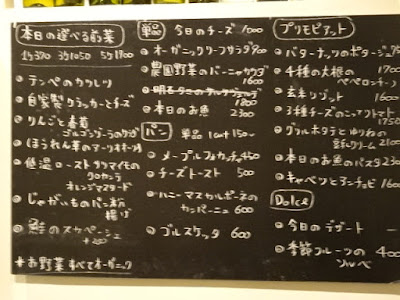 本日の選べる前菜
1ヶ370 3ヶ1050 5ヶ1700
テンペのカツレツ
自家製クラッカーとチーズ
りんごと春菊
ゴルゴンゾーラの
ほうれん草のアーリオオーリオ
低温ローストサツマイモの
クロカンテ
オレンジマスタード
じゃがいものパン粉
揚げ
鮭のスカペーシェ
+200
*お野菜すべてオーガニック
単品 今日のチーズ 1000
オーガニックリーフサラダ
農園野菜のバーニャカウダ
1600
1800
本日のお魚 2300
パン 単品 1cut 150~
メープルフォカッチャ 450
チーズトースト 500
ハニーマスカルポーネの
カンパーニュ 600
ブルスケッタ 600
プリモピアット
バターナッツのポタージュ
4種の大根の 1700
ペペロンチーノ
玄米リゾット 1600
3種チーズの トマト
1750
グリルホタテとゆりねの
クリーム 2100
本日のお魚のパスタ 2300
キャベツとアンチョビ 1600
Dolce
今日のデザート ー
季節フルーツの 400
ソルベ